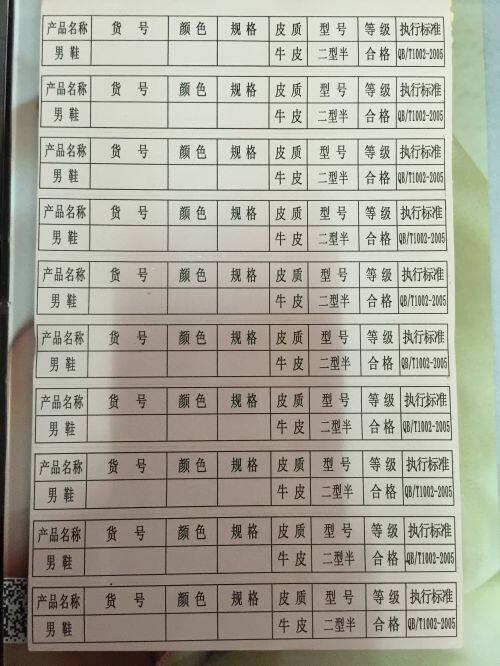 产品名称 货号 颜色 规格 皮质 型号 等级 执行标准
男鞋 牛皮 二型半 合格 QB/T1002-2005
产品名称 货号 颜色 规格 皮质 型号 等级 执行标准
男鞋 牛皮 二型半 合格 QB/T1002-2005
产品名称 货号 颜色 规格 皮质 型号 等级 执行标准
男鞋 牛皮 二型半 合格 QB/T1002-2005
产品名称 货号 颜色 规格 皮质 型号 等级 执行标准
男鞋 牛皮 二型半 合格 QB/T1002-2005
产品名称 货号 颜色 规格 皮质 型号 等级 执行标准
男鞋 牛皮 二型半 合格 QB/T1002-2005
产品名称 货号 颜色 规格 皮质 型号 等级 执行标准
男鞋 牛皮 二型半 合格 QB/T1002-2005
产品名称 货号 颜色 规格 皮质 型号 等级 执行标准
男鞋 牛皮 二型半 合格 QB/T1002-2005
产品名称 货号 颜色 规格 皮质 型号 等级 执行标准
男鞋 牛皮 二型半 合格 QB/T1002-2005
产品名称 货号 颜色 规格 皮质 型号 等级 执行标准
男鞋 牛皮 二型半 合格 QB/T1002-2005
产品名称 货号 颜色 规格 皮质 型号 等级 执行标准
男鞋 牛皮 二型半 合格 QB/T1002-2005